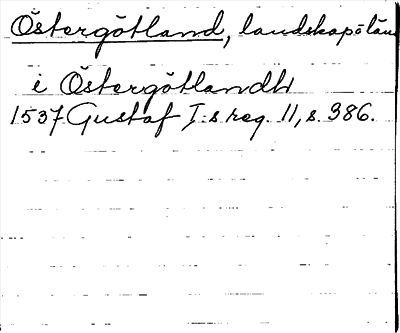 Östergötland, landskapslän
i Östergötlandh
1537 Gustaf I:s reg. 11, s. 386.